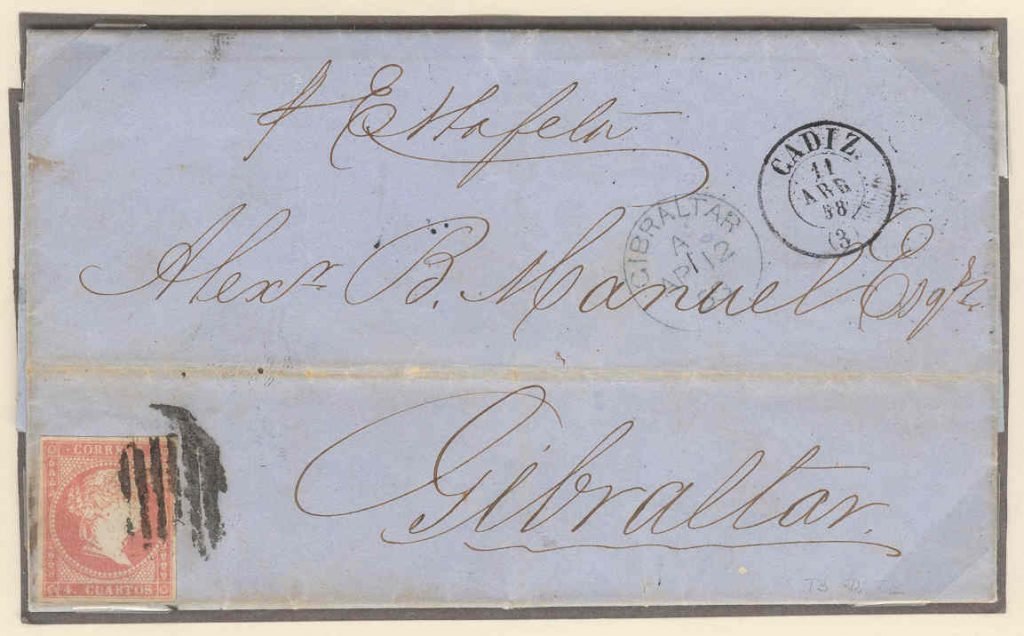 p Estafeta
CADIZ.
11
ABR
58
(3)
GIBRALTAR
A
AP 12
Alexr B. Manuel Esqre
Gibraltar.
CORREOS
4. CUARTOS